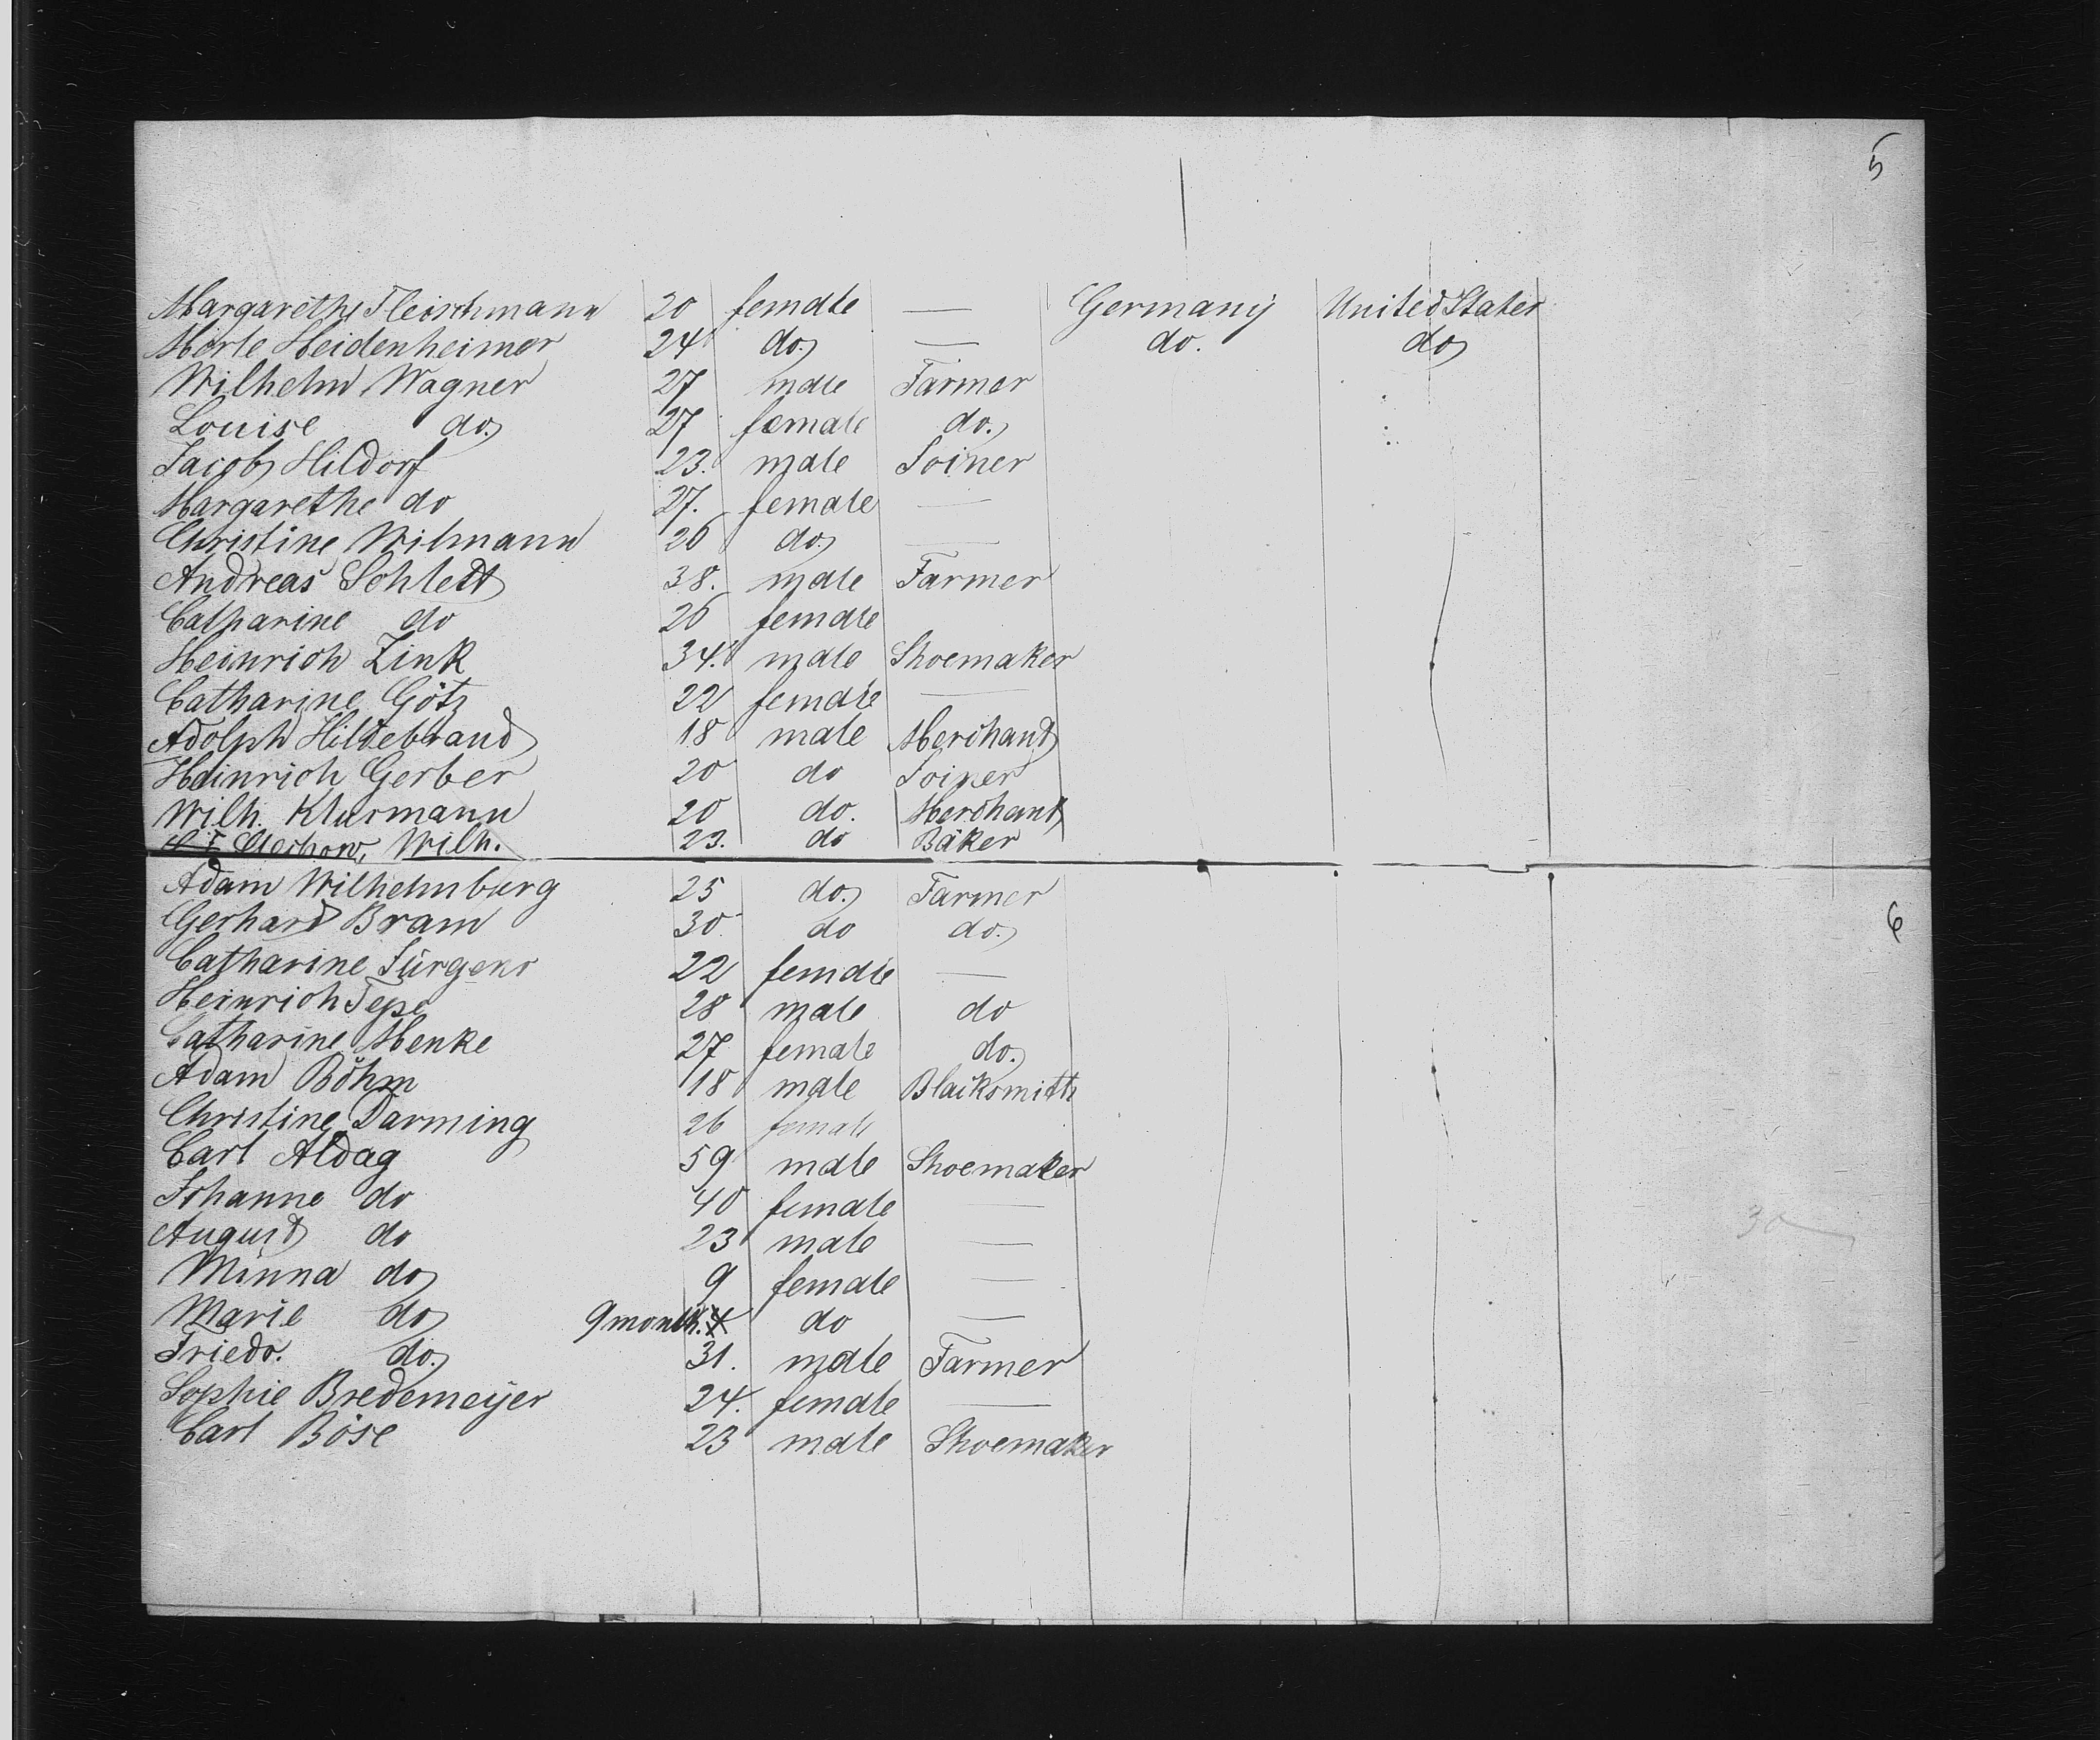 5
Margarethe Fleischmann 20 female — Germany United States
Merle Heidenheimer 24 do. — do. do
Wilhelm Wagner 27 male Farmer
Louise do. 27 female do.
Jacob Hildorf 23. male Joiner
Margarethe do 27. female —
Christine Wilmann 26 do. —
Andreas Schlett 38. male Farmer
Catharine do 26 female
Heinrich Zink 34. male Shoemaker
Catharine Götz 22 female —
Adolph Hildebrand 18 male Merchant
Heinrich Gerber 20 do Joiner
Wilh. Klurmann 20 do. Merchant
Wilh. 23. do Bäker
Adam Wilhelmburg 25 do. Farmer
6
Gerhard Bram 30 do do.
Catharine Jürgens 22 female —
Heinrich Tepe 28 male do
Catharine Menke 27 female do.
Adam Böhm 18 male Blacksmith
Christine Darming 26 female
Carl Aldag 59 male Shoemaker
Johanne do 40 female —
August do 23 male —
Minna do 9 female —
Marie do 9 month. do —
Friedr. do. 31. male Farmer
Sophie Bredemeijer 24. female —
Carl Böse 23 male Shoemaker
30